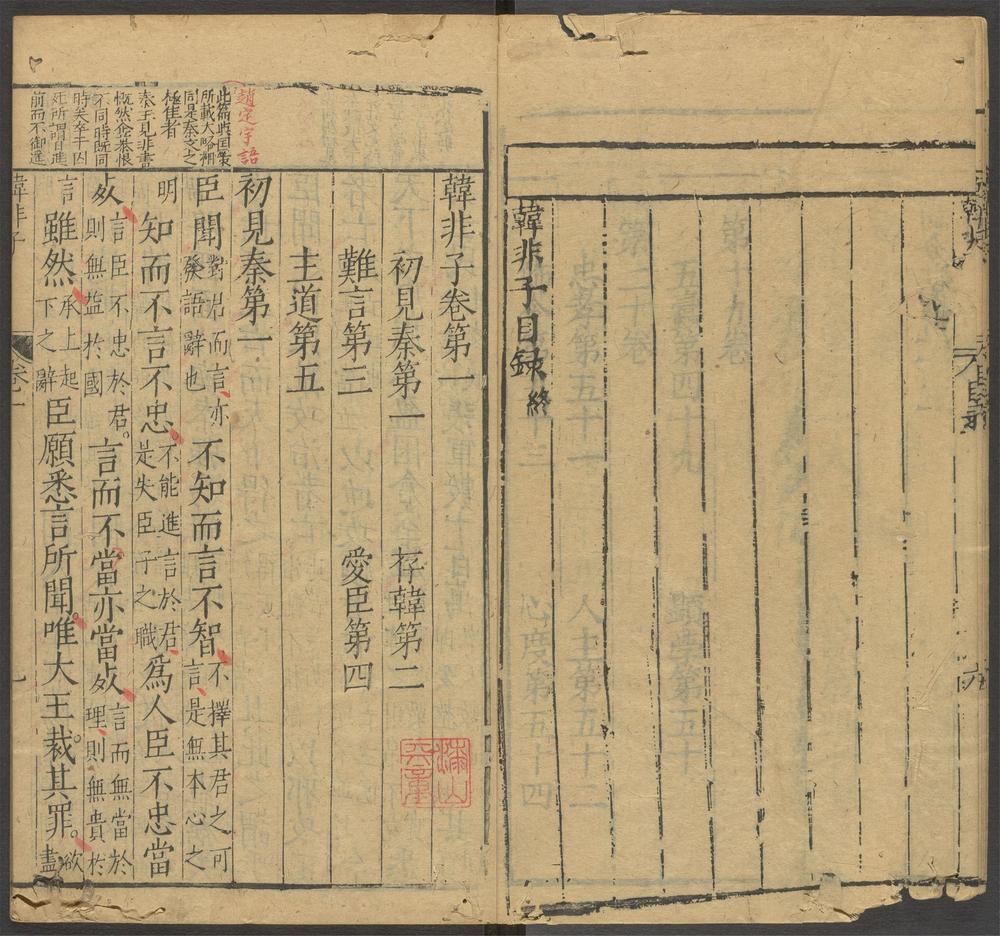 韓非子目錄終
韓非子卷第一
初見秦第一 存韓第二
難言第三 愛臣第四
主道第五
初見秦第一
臣聞對君而言亦發語辭也不知而言不智不擇其君之可言是無本心之
明知而不言不忠不能進言於君是失臣子之職爲人臣不忠當
死言臣不忠於君則無益於國言而不當亦當死言而無當於理則無貴於
言雖然承上起下之辭臣願悉言所聞唯大王裁其罪欲盡
趙定宇語
此篇與国策
所載大略相
同是秦文之
極佳者
秦王見非書
慨然企慕恨
不同時既同
時矣卒于囚
死所謂日進
前而不御遙
韓非子
卷一